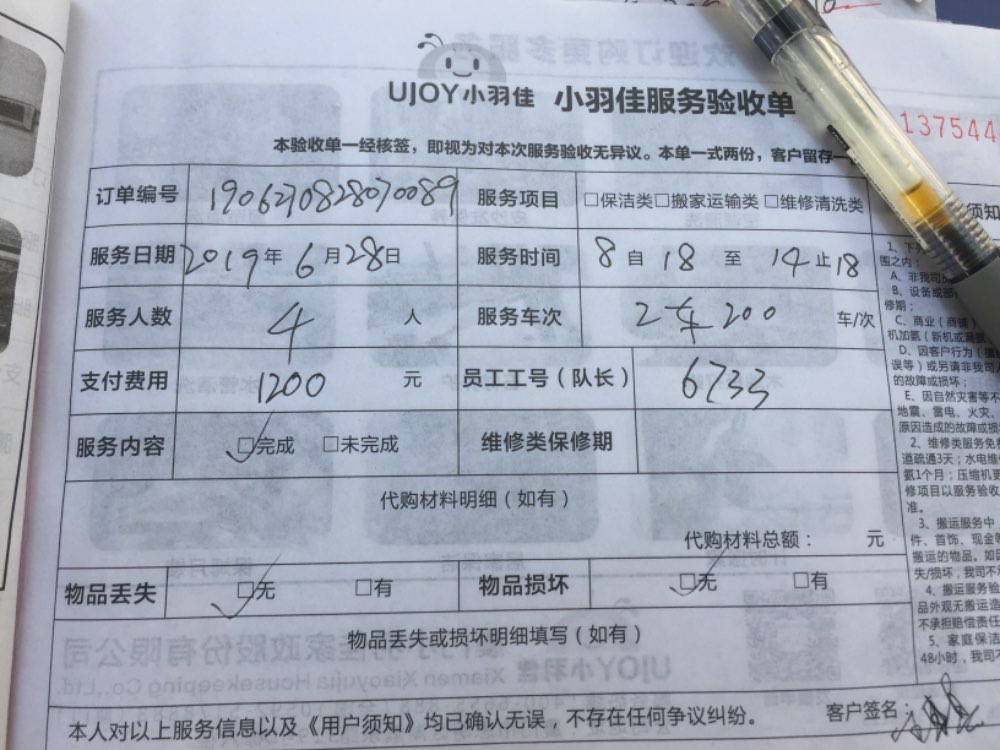 UJOY小羽佳 小羽佳服务验收单
137544
本验收单一经核签，即视为对本次服务验收无异议。本单一式两份，客户留存一
订单编号 1906270828070089 服务项目 □保洁类□搬家运输类□维修清洗类
服务日期 2019年6月28日 服务时间 8自18至14止18
服务人数 4人 服务车次 2车200 车/次
支付费用 1200元 员工工号（队长） 6733
服务内容 □完成 □未完成 维修类保修期
代购材料明细（如有）
代购材料总额： 元
物品丢失 □无 □有 物品损坏 □无 □有
物品丢失或损坏明细填写（如有）
本人对以上服务信息以及《用户须知》均已确认无误，不存在任何争议纠纷。 客户签名：
须知
1、下
围之内：
A、非我司
B、设备或部
修期；
C、商业（商铺）
机加氨（新机或漏
D、因客户行为（
误等）或另请非我司
的故障或损坏；
E、因自然灾害等不
地震、雷电、火灾、
原因造成的故障或损
2、维修类服务免
道疏通3天；水电维
氨1个月；压缩机更
修项目以服务验收
准。
3、搬运服务中
件、首饰、现金等
搬运的物品。如因
失/损坏，我司不
4、搬运服务验
品外观无搬运造
不承担赔偿责任
5、家庭保洁
48小时，我司不